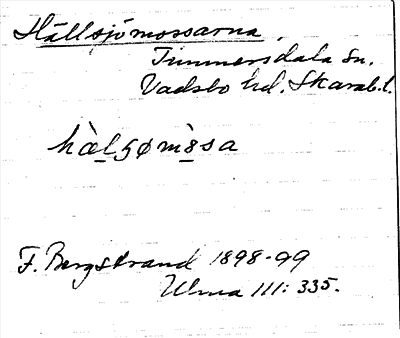 Hällsjömossarna.
Timmersdala Sn.
Vadsbo hd. Skarab.l.
hàlsømàsa
F. Bergstrand 1898-99
Ulma 111: 335.